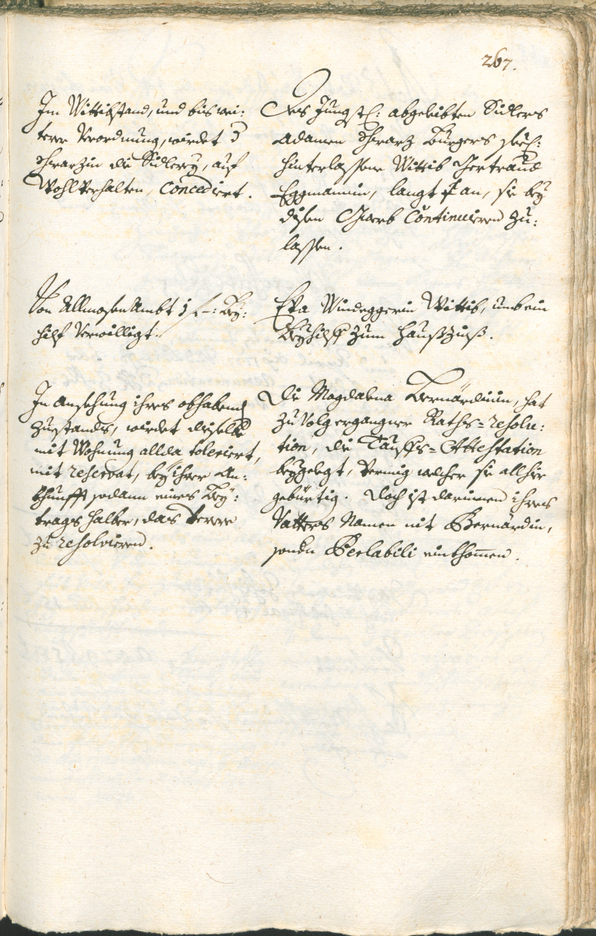 267.
Im Wittibstand, und bis wei:
terer Verordnung, wirdet d
Schwarzin die Sidlerey, auf
Wohlverhalten, Concediert.
Des Jungsthin abgeleibten Sidlers
Adamen Schwarz Burgers seel:
hinterlassene Wittib Gertraud
Eggmannin, langt an, sie bey
disen Gwerb Continuieren zu:
lassen.
Von Allmosen Ambt 1 f: Bey:
hilf verwilligt.
Eva Windeggerin Wittib, umb ein
Beyhilf zum Haußzinß.
In Ansehung ihres obhabend
Zuestands, wirdet dieselbe
mit Wohnung allda toleriert,
mit reservat, bey ihrer An:
khunfft sodann eines Bey:
trags halber, das weitere
zu resolvieren.
Die Magdalena Bernardinin, hat
zu Volg ergangner Raths-resolu:
tion, die Tauffs-Attestation
beygelegt, vermig welcher sie allhier
gebürtig. Doch ist darinnen ihres
Vatters Namen nit Bernardin,
sondern Berlabili einkhommen.